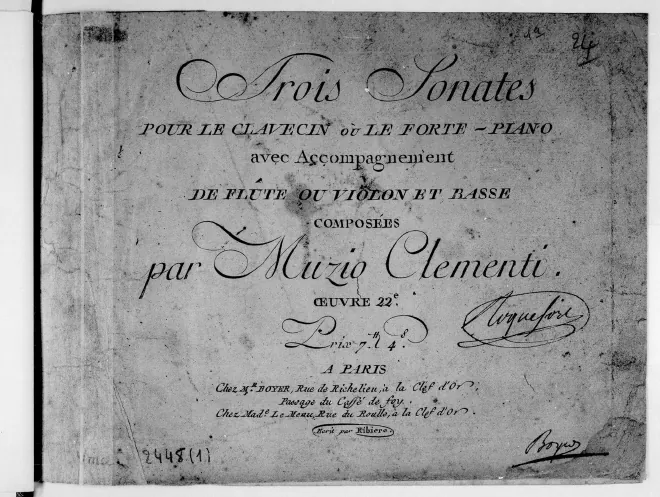 24
Trois Sonates
POUR LE CLAVECIN OU LE FORTE - PIANO
avec Accompagnement
DE FLÛTE OU VIOLON ET BASSE
COMPOSÉES
par Muzio Clementi.
ŒUVRE 22e.
Prix 7# 4s.
A PARIS
Chez Mr. BOYER, Rue de Richelieu, à la Clef d'Or,
Passage du Caffé de foy.
Chez Made. Le Menu, Rue du Roulle, à la Clef d'Or.
Ecrit par Ribiere
Boyer
2448(1)